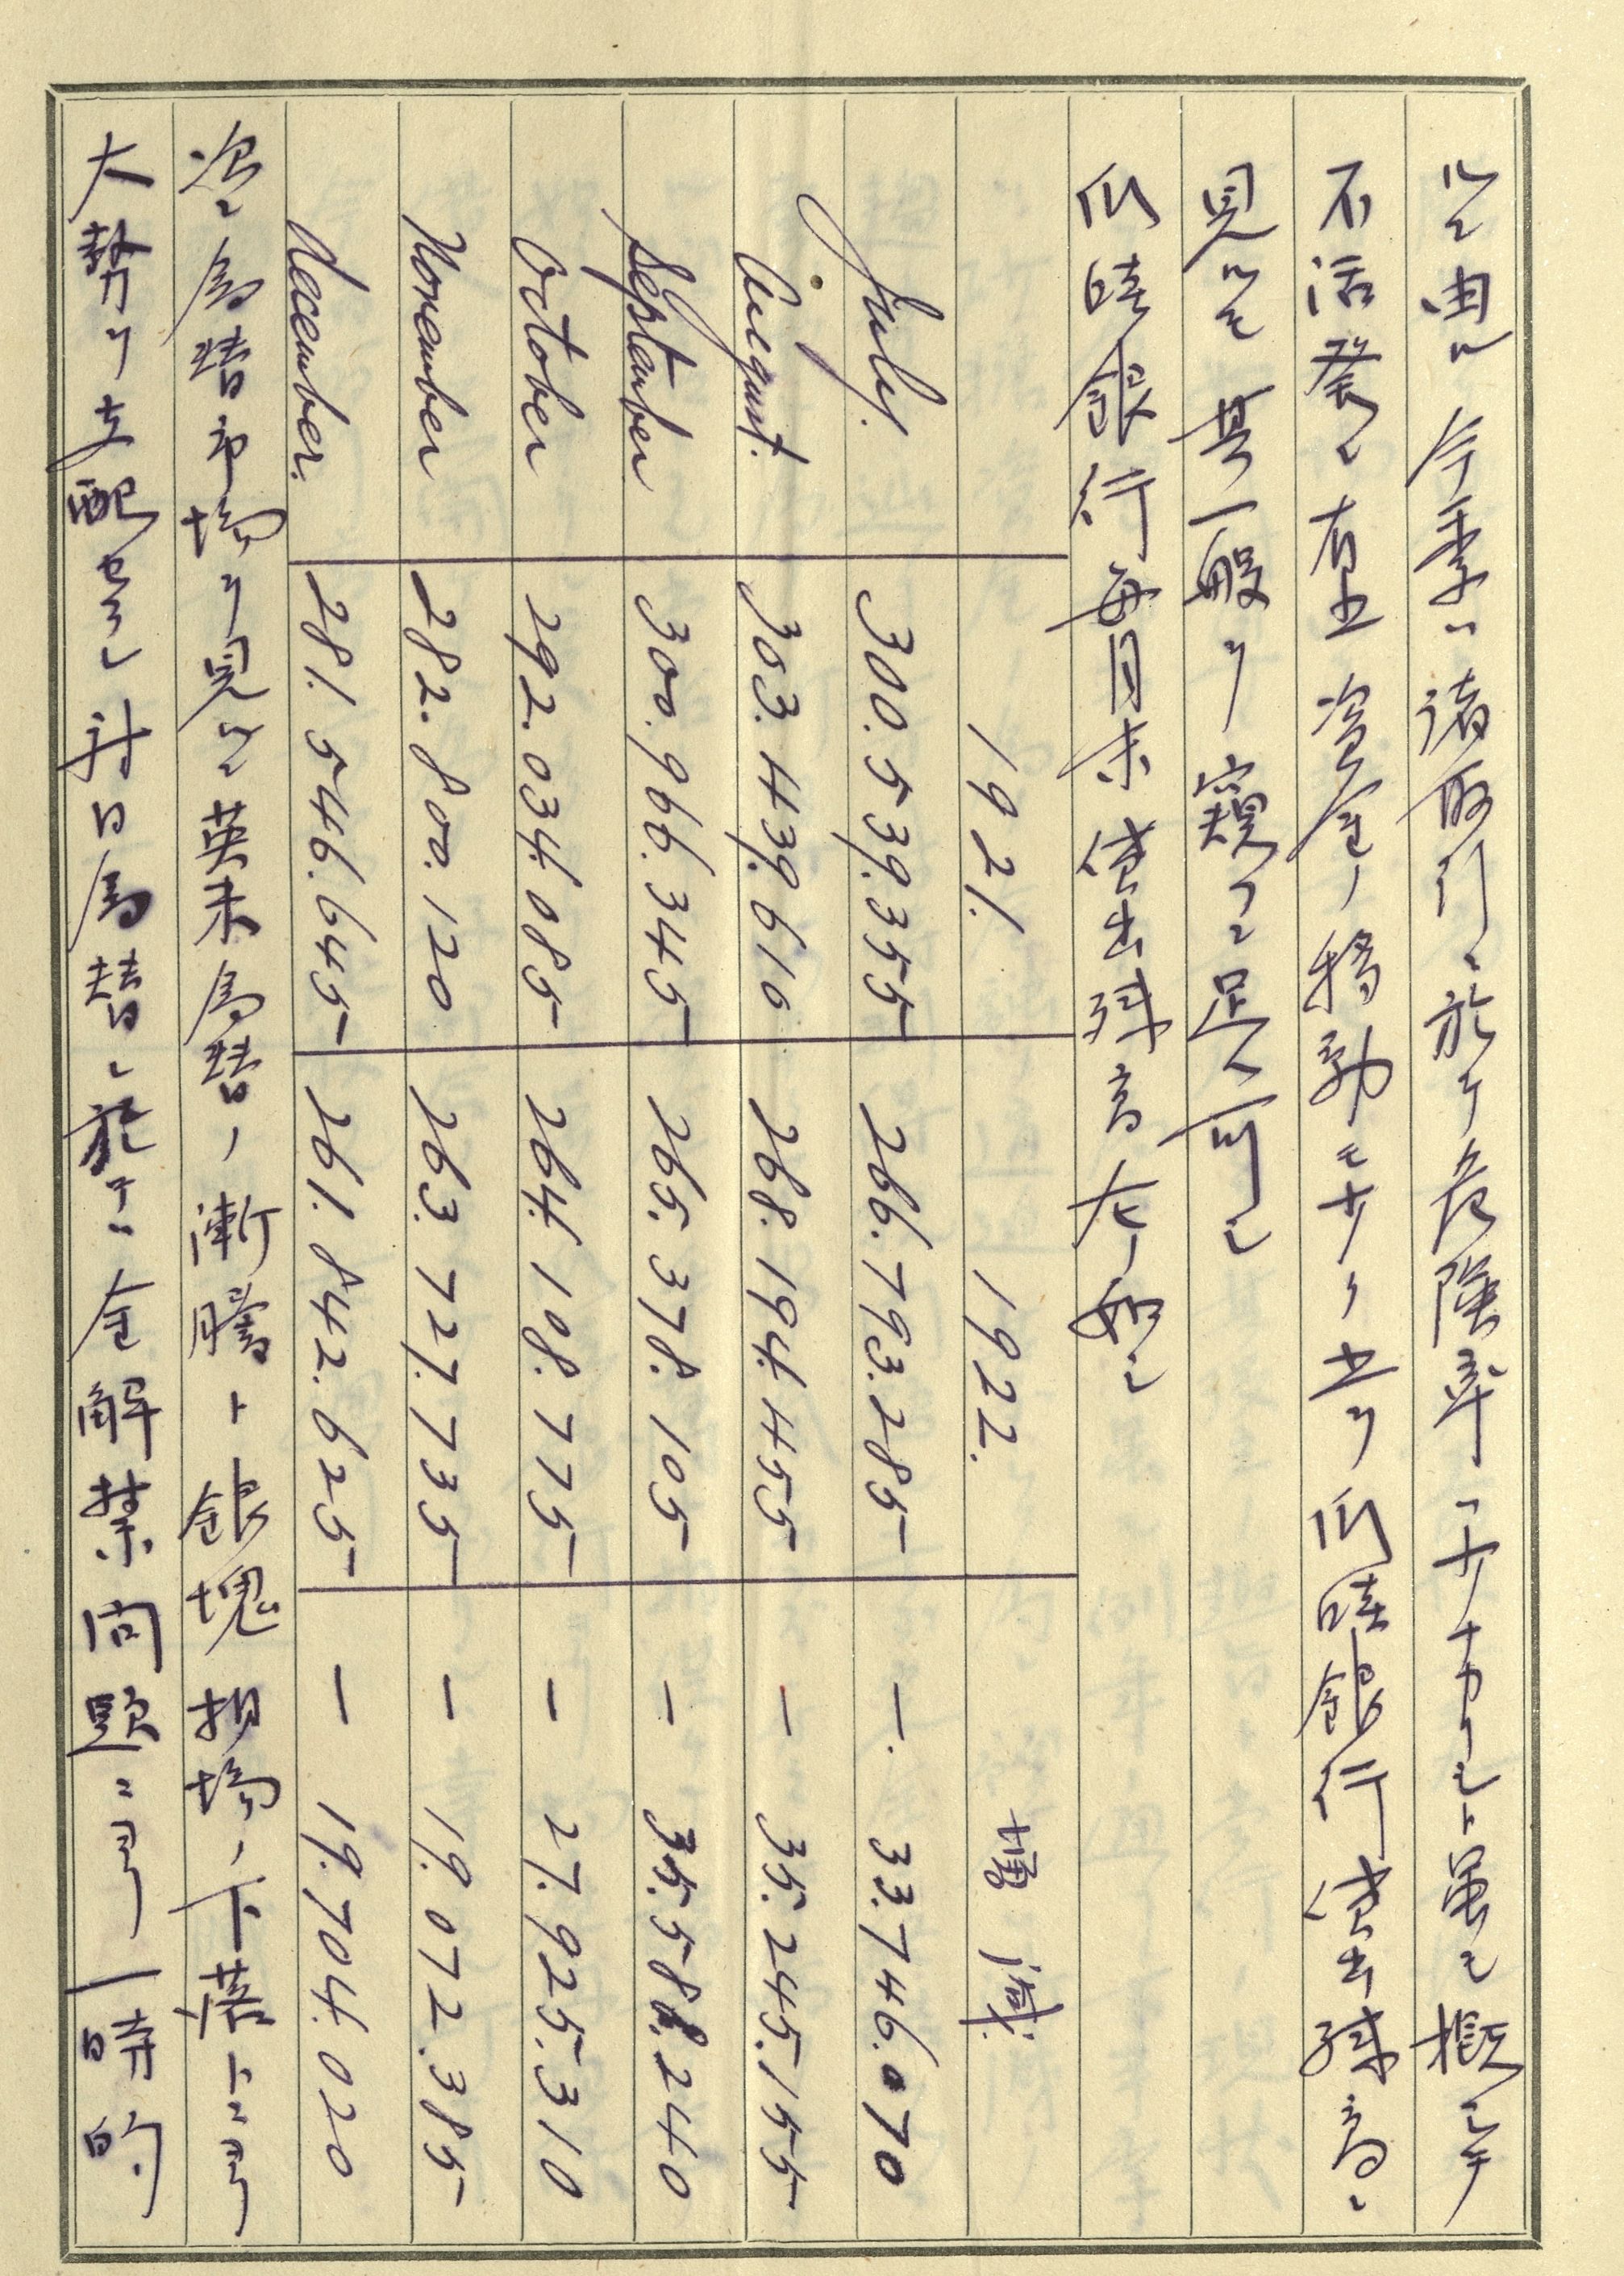 ルニ由ル今季ハ諸取引ニ於ケ危険率ハ少ナカリシト雖モ概シテ
不活発ニ有之資金ノ移動モ少ク之ヲ爪哇銀行貸出残高ニ
見ルモ其一般ヲ窺フニ足ル可シ
爪哇銀行毎月末貸出残高左ノ如シ
1921. 1922. 増減
July. 300.539.355 266.793.285 —. 33.746.070
August. 303.439.610 268.194.455 — 35.245.155
September 300.966.345 265.378.105 — 35.588.240
October 292.034.085 264.108.775 — 27.925.310
November 282.800.120 263.727.735 — 19.072.385
December. 281.546.645 261.842.625 — 19.704.020
次ニ為替市場ヲ見ルニ英米為替ノ漸騰ト銀塊相場ノ下落トニヨリ
大勢ヲ支配セラレ対日為替ニ於テハ金解禁問題ニヨリ一時的